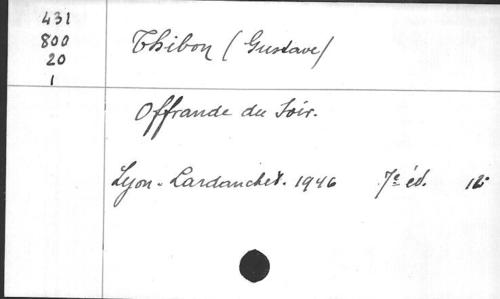 431
800
20
1
Thibon (Gustave)
Offrande du Soir.
Lyon - Lardanchet. 1946 7e éd. 12°